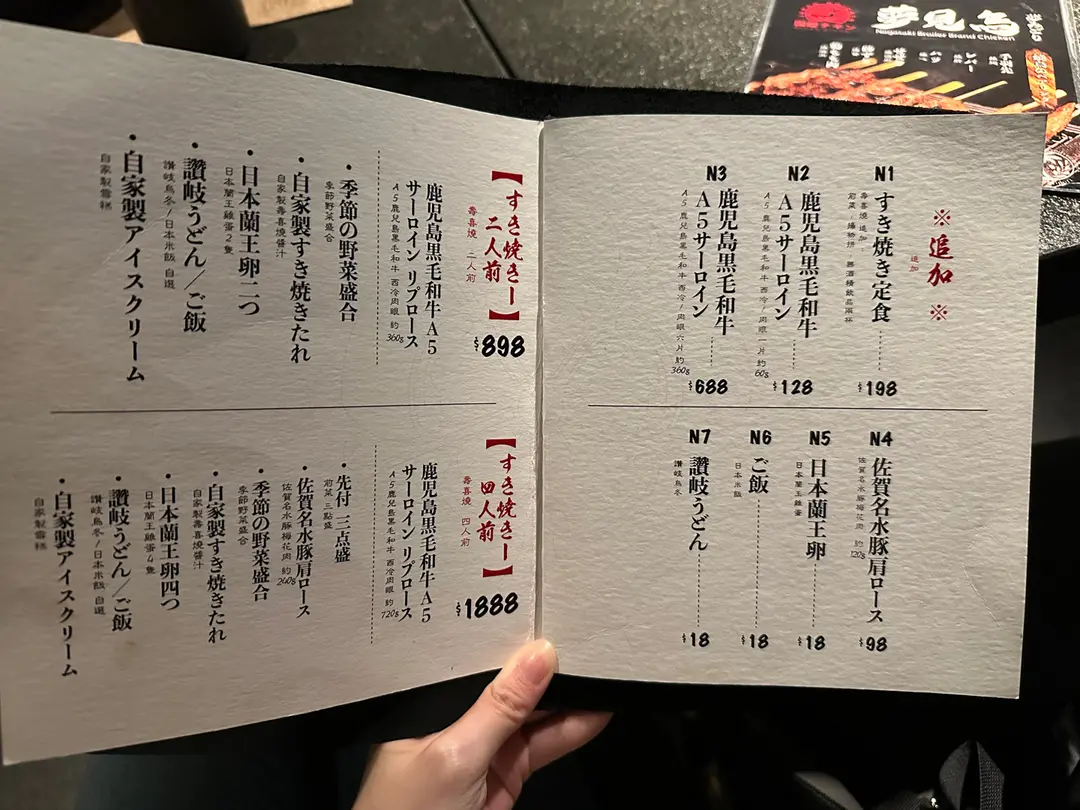 ※追加※
追加
N1
すき焼き定食
$198
N2
鹿児島黒毛和牛
A5サーロイン
A5鹿兒島黒毛和牛 西冷/肉眼一片 約60g
$128
N3
鹿児島黒毛和牛
A5サーロイン
A5鹿兒島黒毛和牛 西冷/肉眼六片 約360g
$688
N4
佐賀名水豚肩ロース
佐賀名水豚梅花肉 約120g
$98
N5
日本蘭王卵
日本蘭王雞蛋
$18
N6
ご飯
日本米飯
$18
N7
讃岐うどん
讃岐烏冬
$18
【すき焼きー
二人前】
壽喜燒 二人前
$898
鹿児島黒毛和牛A5
サーロイン リブロース
A5鹿兒島黒毛和牛 西冷肉眼 約360g
・季節の野菜盛合
季節野菜盛合
・自家製すき焼きたれ
自家製壽喜燒醬汁
・日本蘭王卵二つ
日本蘭王雞蛋2隻
・讃岐うどん/ご飯
讃岐烏冬/日本米飯 自選
・自家製アイスクリーム
自家製雪糕
【すき焼きー
四人前】
壽喜燒 四人前
$1888
鹿児島黒毛和牛A5
サーロイン リブロース
A5鹿兒島黒毛和牛 西冷肉眼 約720g
・先付 三点盛
前菜 三點盛
・佐賀名水豚肩ロース
佐賀名水豚梅花肉 約260g
・季節の野菜盛合
季節野菜盛合
・自家製すき焼きたれ
自家製壽喜燒醬汁
・日本蘭王卵四つ
日本蘭王雞蛋4隻
・讃岐うどん/ご飯
讃岐烏冬/日本米飯 自選
・自家製アイスクリーム
自家製雪糕
夢見鳥
Nagasaki Broiler Brand Chicken